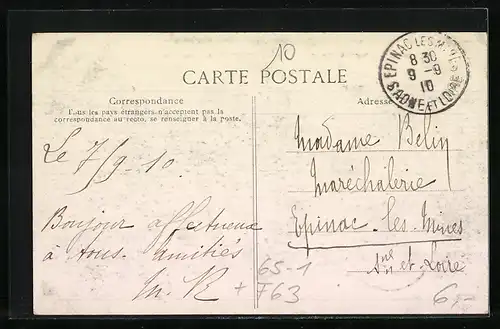 10
EPINAC LES MINES
8 30
9 - 9
10
SAONE ET LOIRE
CARTE POSTALE
Correspondance
Tous les pays étrangers n'acceptent pas la
correspondance au recto, se renseigner à la poste.
Le 7/9. 10.
Bonjour affectueux
à tous. amitiés
M. R
Adresse
Madame Belin
Maréchalerie
Epinac-les-Mines
Sne et Loire
65-1
+ F63
6,-